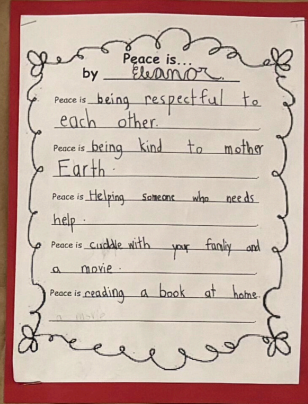 Peace is...
by Eleanor
Peace is being respectful to
each other.
Peace is being kind to mother
Earth.
Peace is Helping someone who needs
help.
Peace is cuddle with your family and
a movie.
Peace is reading a book at home